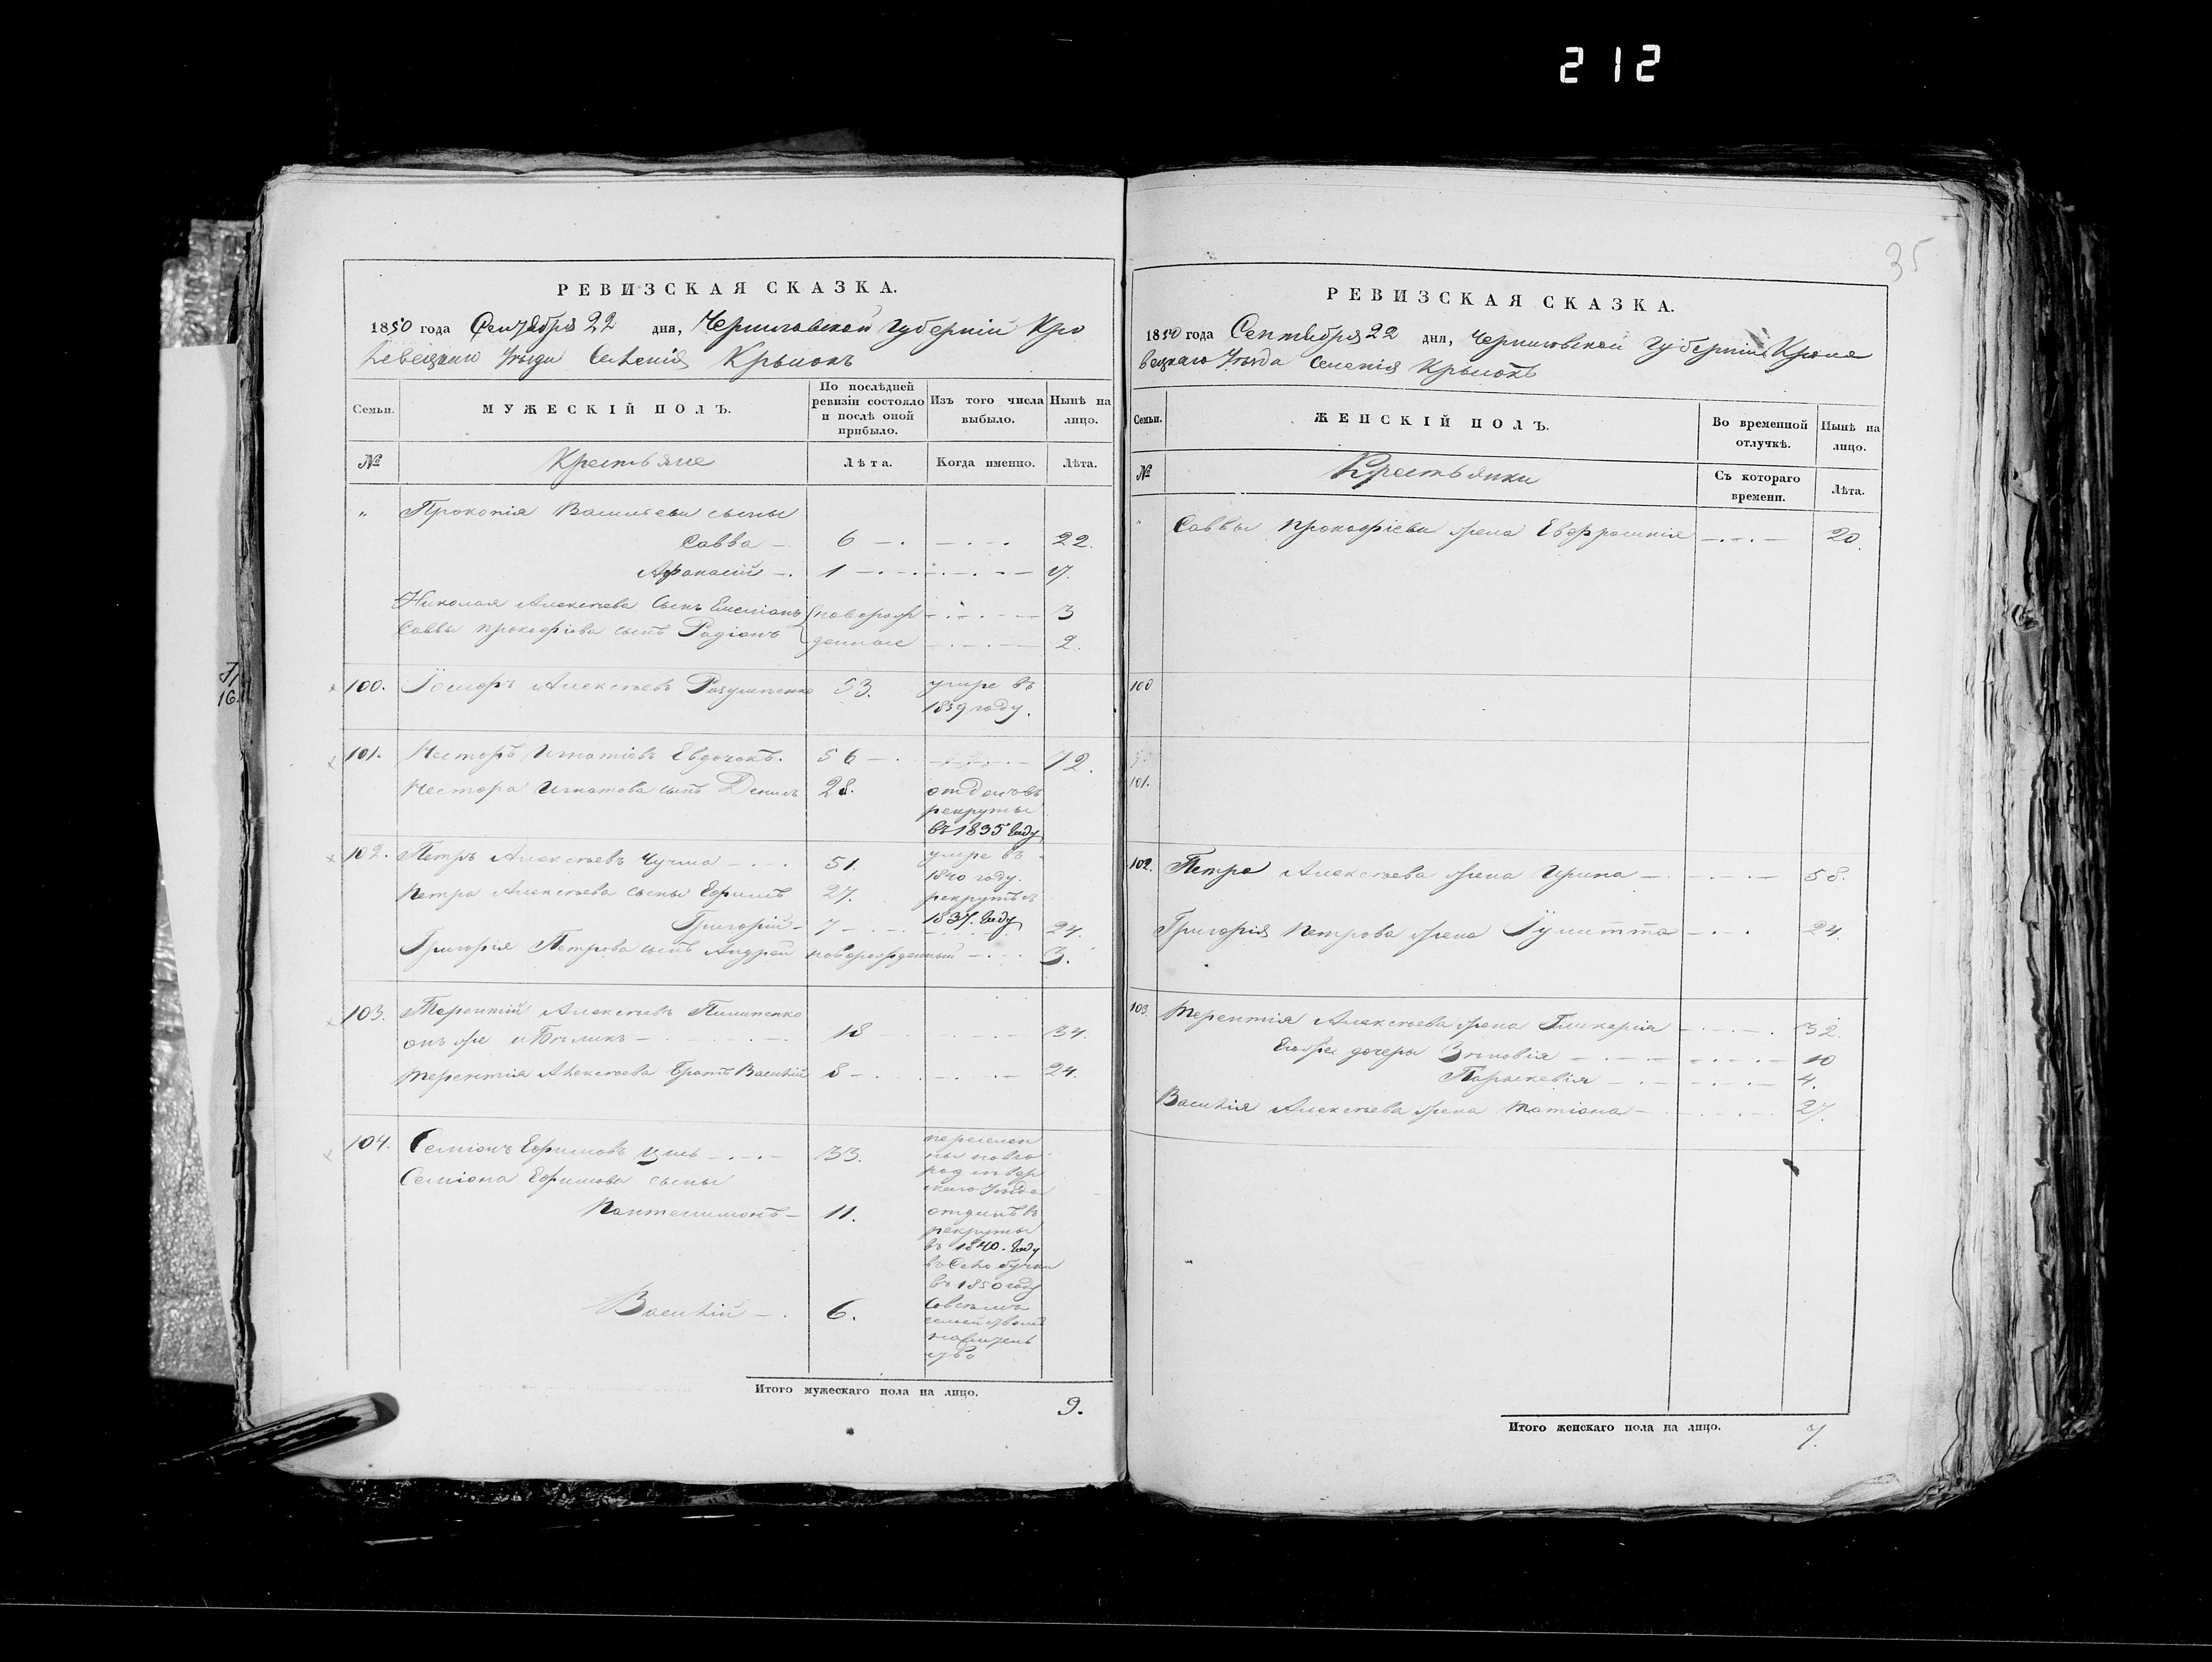 212
35
РЕВИЗСКАЯ СКАЗКА.
1850 года Сентября 22 дня, Черниговской Губерніи Кро
левецкаго Уезда Селенія Крымокъ
Семьи. МУЖЕСКІЙ ПОЛЪ. По послѣдней ревизіи состояло и послѣ оной прибыло. Изъ того числа выбыло. Нынѣ на лицо.
№ Крестьяне Лѣта. Когда именно. Лѣта.
„ Прокопія Васильева сыны
Савва — 6 22.
Афанасій — 1 17.
Николая Алексѣева сынъ Емеліанъ новорож 3
Саввы Прокофіева сынъ Родіонъ денные 2.
100. Алексѣевъ 53. умре въ
1839 году.
101. Несторъ Игнатіевъ Евдочокъ. 56 72.
Нестора Игнатова сынъ Денисъ 28. отданъ въ
рекруты
въ 1835 году
102. Петръ Алексѣевъ Чучма 51. умре въ
1840 году.
Петра Алексѣева сыны Ефимъ 27. рекрутъ въ
1837. году
Григорій — 7 24.
Григорія Петрова сынъ Андрей новорожденный 3.
103. Терентій Алексѣевъ Пилипенко
онъ же и Бѣликъ — 18 34.
Терентія Алексѣева братъ Василій 8 24.
104. Семіонъ Ефимовъ 33. переселен
Семіона Ефимова сыны
Пантелимонъ — 11. отданъ въ
рекруты
въ 1840. году
въ 1850 году
Василій — 6. совсѣмъ
семействомъ
Итого мужескаго пола на лицо. 9.
РЕВИЗСКАЯ СКАЗКА.
1850 года Сентября 22 дня, Черниговской Губерніи Кроле
вецкаго Уезда Селенія Крымокъ
Семьи. ЖЕНСКІЙ ПОЛЪ. Во временной отлучкѣ. Нынѣ на лицо.
№ Крестьянки Съ котораго времени. Лѣта.
„ Саввы Прокофіева жена Евфросинія 20.
100
101.
102. Петра Алексѣева жена Ирина 58.
Григорія Петрова жена Іулитта 24.
103. Терентія Алексѣева жена Гликерія 32.
Егоже дочеры Зѣновія 10
Параскевія 4.
Василія Алексѣева жена Татіана 27.
Итого женскаго пола на лицо. 7.